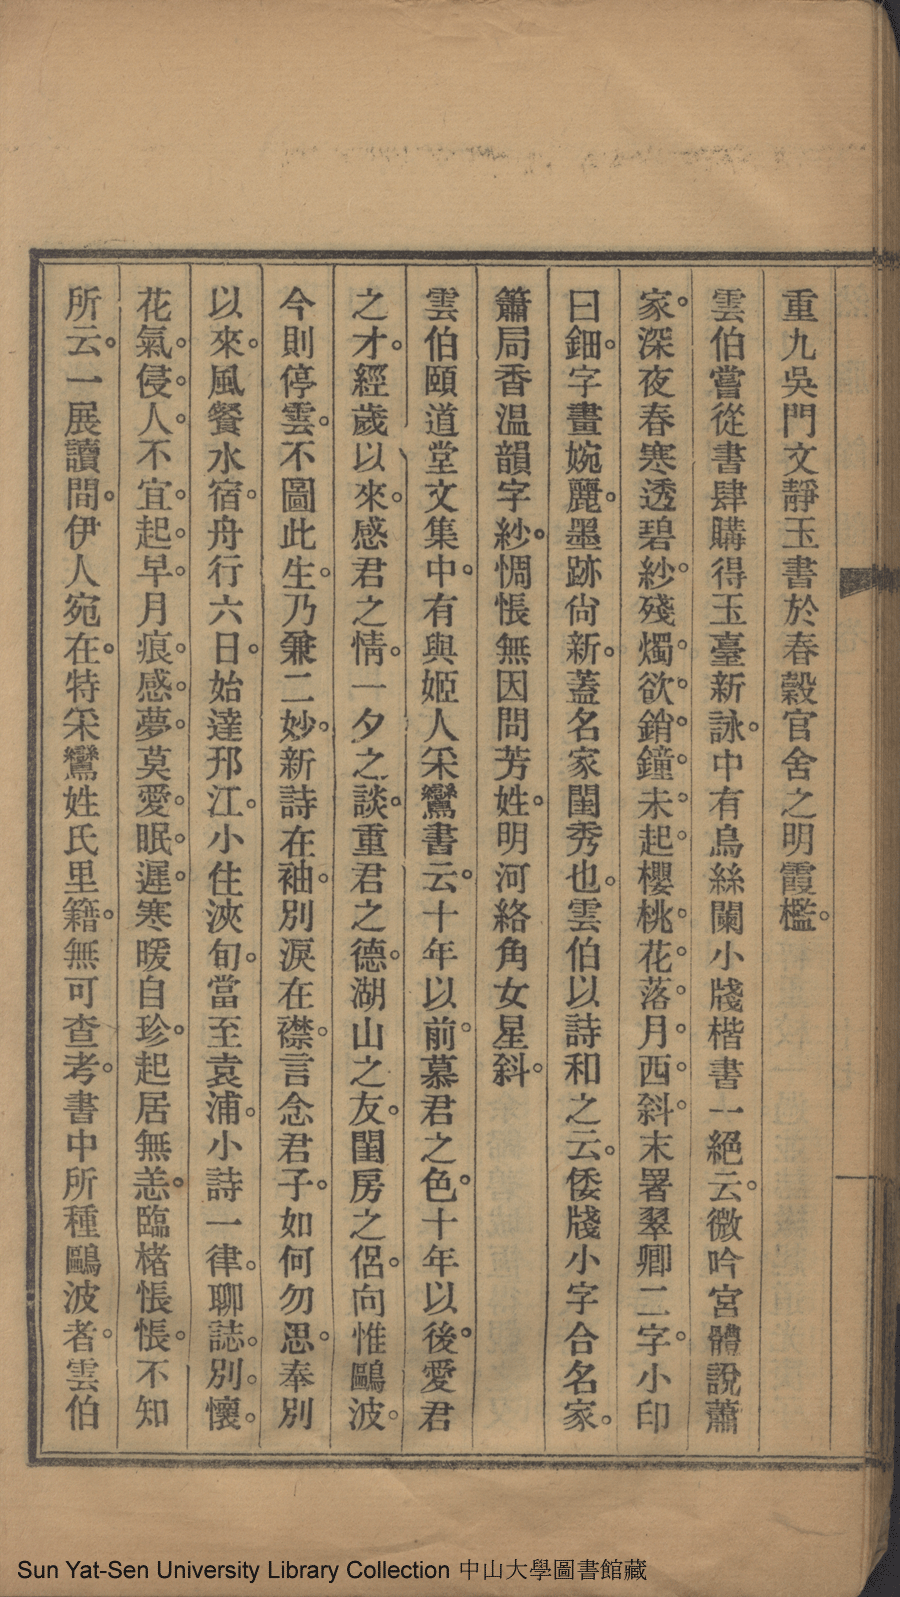 重九吳門文靜玉書於春穀官舍之明霞檻。
雲伯嘗從書肆購得玉臺新詠。中有烏絲闌小牋楷書一絕云。微吟宮體說蕭
家。深夜春寒透碧紗。殘燭。欲。銷。鐘。未。起。櫻桃。花。落。月。西。斜。末署翠卿二字。小印
曰鈿。字畫婉麗。墨跡尙新。蓋名家閨秀也。雲伯以詩和之云。倭牋小字合名家。
簫局香温韻字紗。惆悵無因問芳姓。明河絡角女星斜。
雲伯頤道堂文集中。有與姬人采鸞書云。十年以前。慕君之色。十年以後。愛君
之才。經歲以來。感君之情。一夕之談。重君之德。湖山之友。閨房之侶。向惟鷗波。
今則停雲。不圖此生。乃兼二妙。新詩在袖。別淚在襟。言念君子。如何勿思。奉別
以來。風餐水宿。舟行六日。始達邗江。小住浹旬。當至袁浦。小詩一律。聊誌。別。懷。
花氣。侵。人。不宜。起。早。月痕。感。夢。莫愛。眠。遲。寒暖自珍。起居無恙。臨楮悵悵。不知
所云。一展讀間。伊人宛在。特采鸞姓氏里籍。無可查考。書中所種鷗波者。雲伯
Sun Yat-Sen University Library Collection 中山大學圖書館藏